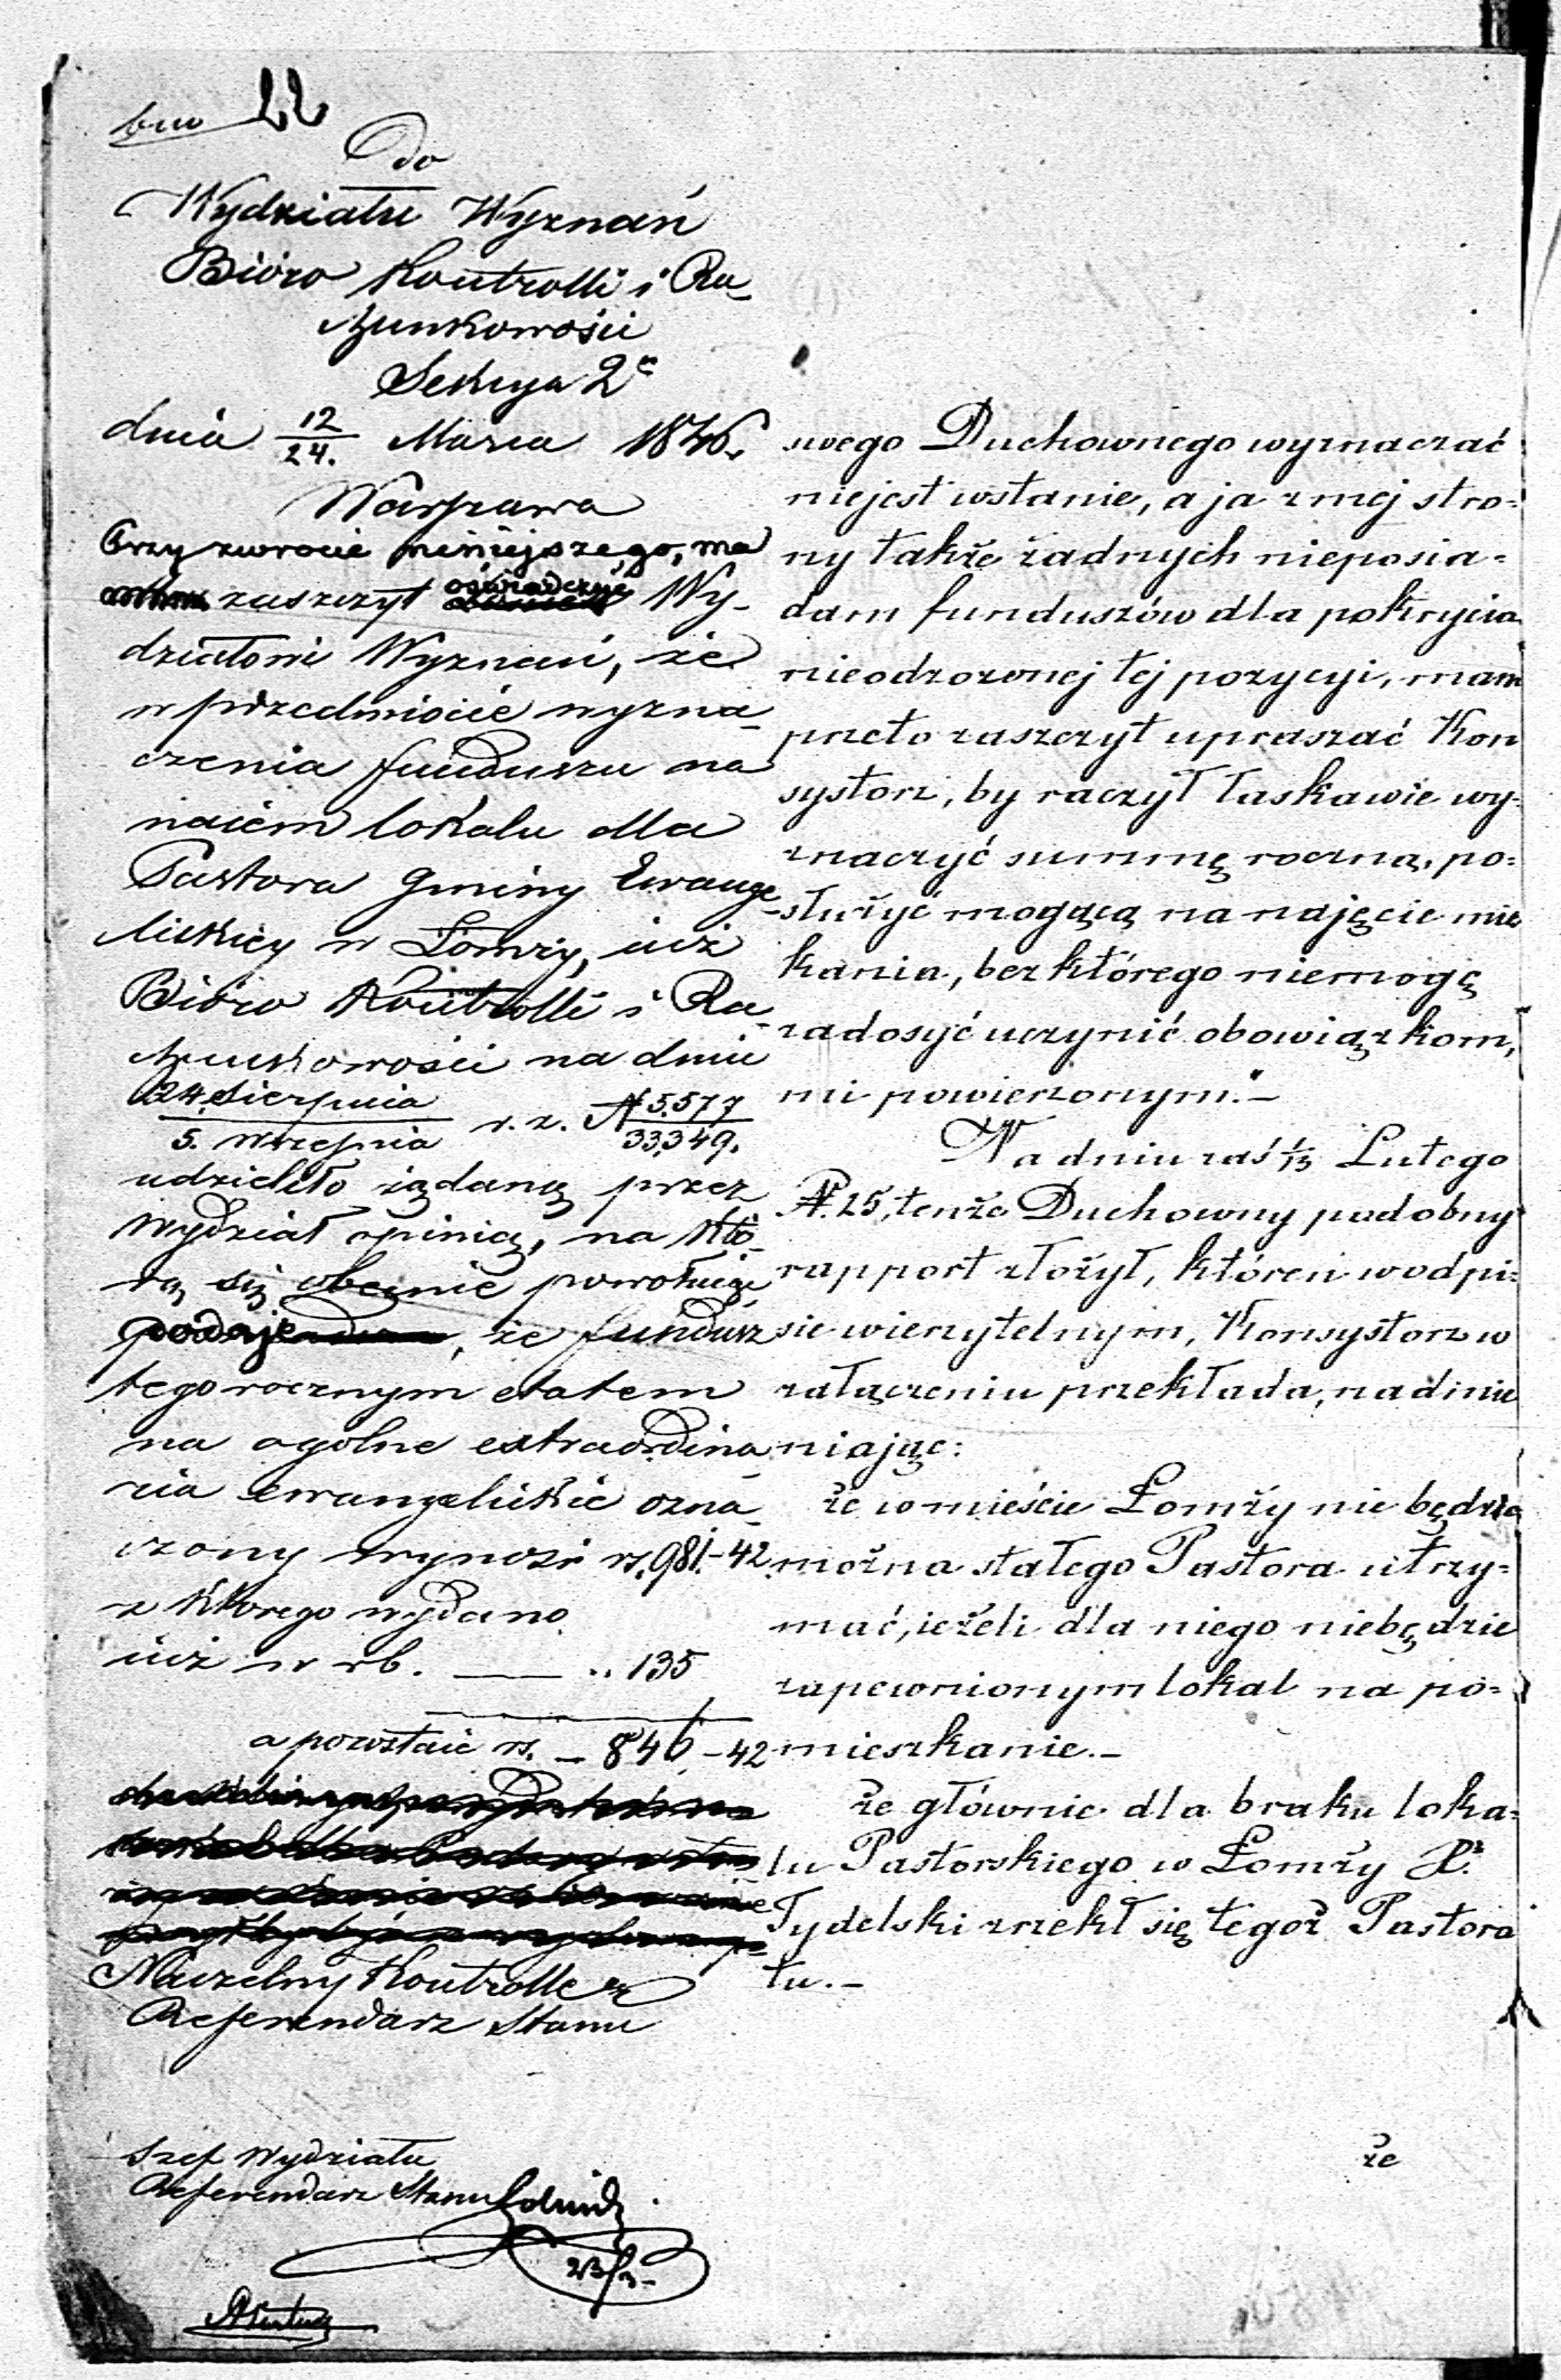 Do
Wydziału Wyznań
Bióro Kontrolli i Ra-
chunkowości
Sekcya 2a
dnia 12/24. Marca 1846.
Warszawa
Przy zwrocie niniejszego, ma
zaszczyt oświadczyć Wy-
działowi Wyznań, że
w przedmiocie wyzna-
czenia funduszu na
naiem lokalu dla
Pastora Gminy Ewange-
lickiey w Łomży, iuż
Bióro Kontrolli i Ra-
chunkowości na dniu
24. Sierpnia / 5. Września r. z. N 5,577 / 33,349.
udzieliło żądaną przez
Wydział opinią, na któ-
rą się obecnie powołując
podaje, że fundusz
tegorocznym etatem
na ogolne extraordina-
ria ewangelickie ozna-
czony wynosi rs. 981.-42
z którego wydano
iuż w rb. — .. 135
a pozostaie rs. - 846,-42
Naczelny Kontroller
Referendarz Stanu
Szef Wydziału
Referendarz Stanu
23/3-
swego Duchownego wyznaczać
niejest wstanie, a ja z mej stro=
ny także żadnych nieposia=
dam funduszów dla pokrycia
nieodzownej tej pozycyi, mam
przeto zaszczyt upraszać Kon
systorz, by raczył łaskawie wy=
znaczyć summę roczną, po=
służyć mogącą na najęcie mie
kania, bez którego niemogę
zadosyć uczynić obowiązkom,
mi powierzonym."-
Na dniu zaś 1/13 Lutego
N. 25, tenże Duchowny podobny
rapport złożył, któren w odpi=
sie wierzytelnym, Konsystorz w
załączeniu przekłada, nadmie
niając:
że w mieście Łomży nie będzie
można stałego Pastora utrzy=
mać, ieżeli dla niego niebędzie
zapewnionym lokal na po=
mieszkanie.-
Że głównie dla braku loka=
lu Pastorskiego w Łomży X.
Tydelski zrzekł się tegoż Pastora
tu.-
że